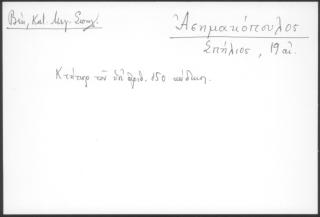 Βέη, Κατ. Μεγ. Σπηλ.
Ἀσημακόπουλος
Σπήλιος, 19 αἰ.
Κτήτωρ τοῦ ὑπ' ἀριθ. 150 κώδικος.